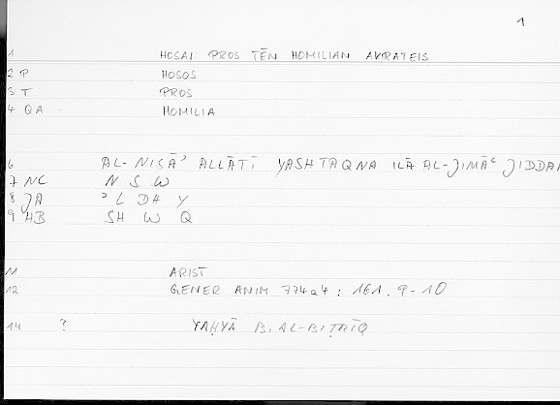 1
1 HOSAI PROS TĒN HOMILIAN AKRATEIS
2 P HOSOS
3 T PROS
4 QA HOMILIA
6 AL-NISĀʾ ALLĀTĪ YASHTAQNA ILĀ AL-JIMĀʿ JIDDA
7 NC N S W
8 JA ʾ L DH Y
9 HB SH W Q
M ARIST
12 GENER ANIM 774a4 : 161. 9-10
14 ? YAḤYĀ B. AL-BIṬRĪQ